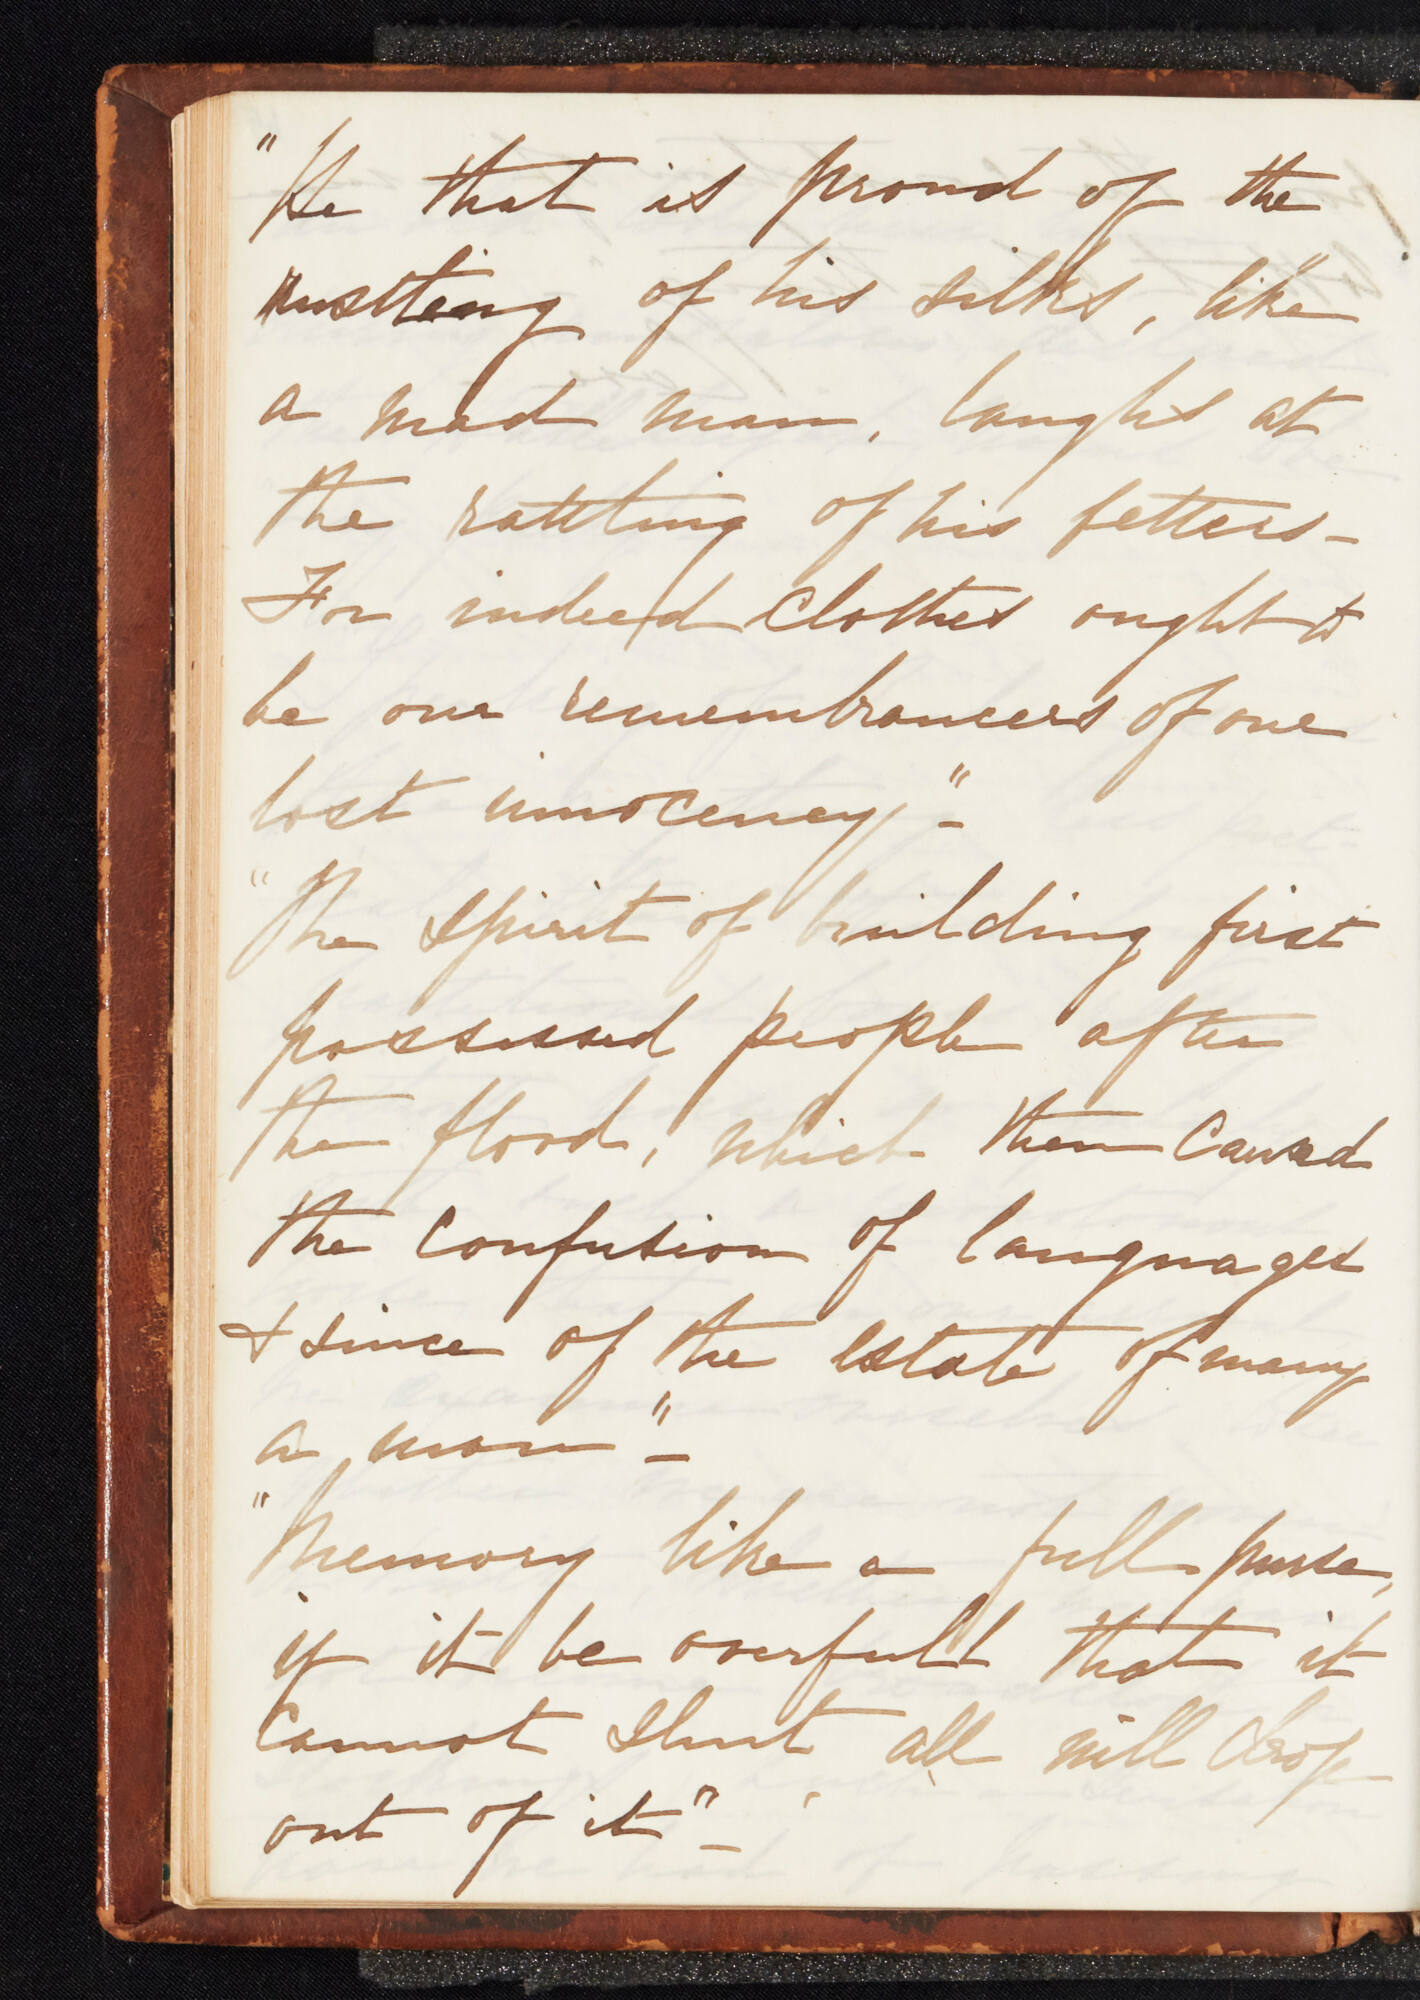 "He that is proud of the
rustling of his silks, like
a mad man, laughs at
the rattling of his fetters –
For indeed clothes ought to
be our remembrancers of our
lost innocency" –
"The spirit of building first
possessed people after
the flood, which then caused
the confusion of languages
& since of the estate of many
a man" –
"Memory like a full purse,
if it be overfull that it
cannot shut all will drop
out of it" –